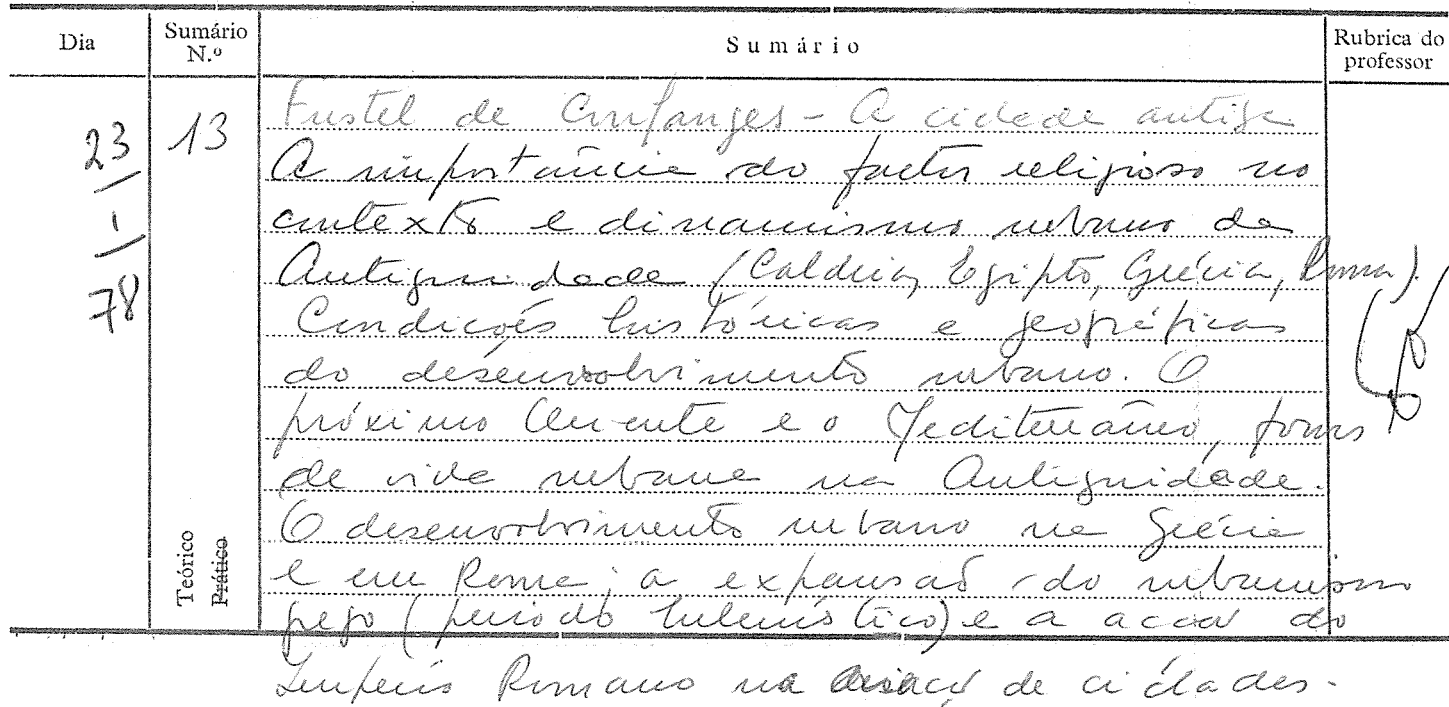 Dia
Sumário N.º
Sumário
Rubrica do professor
23
1
78
13
Teórico
Prático
Fustel de Coulanges - A cidade antiga
A importância do factor religioso no
contexto e dinamismo urbano da
Antiguidade (Caldeia, Egipto, Grécia, Roma).
Condições históricas e geográficas
do desenvolvimento urbano. O
próximo Oriente e o Mediterrâneo, focos
de vida urbana na Antiguidade.
O desenvolvimento urbano na Grécia
e em Roma; a expansão do urbanismo
grego (período helenístico) e a acção do
Império Romano na criação de cidades.